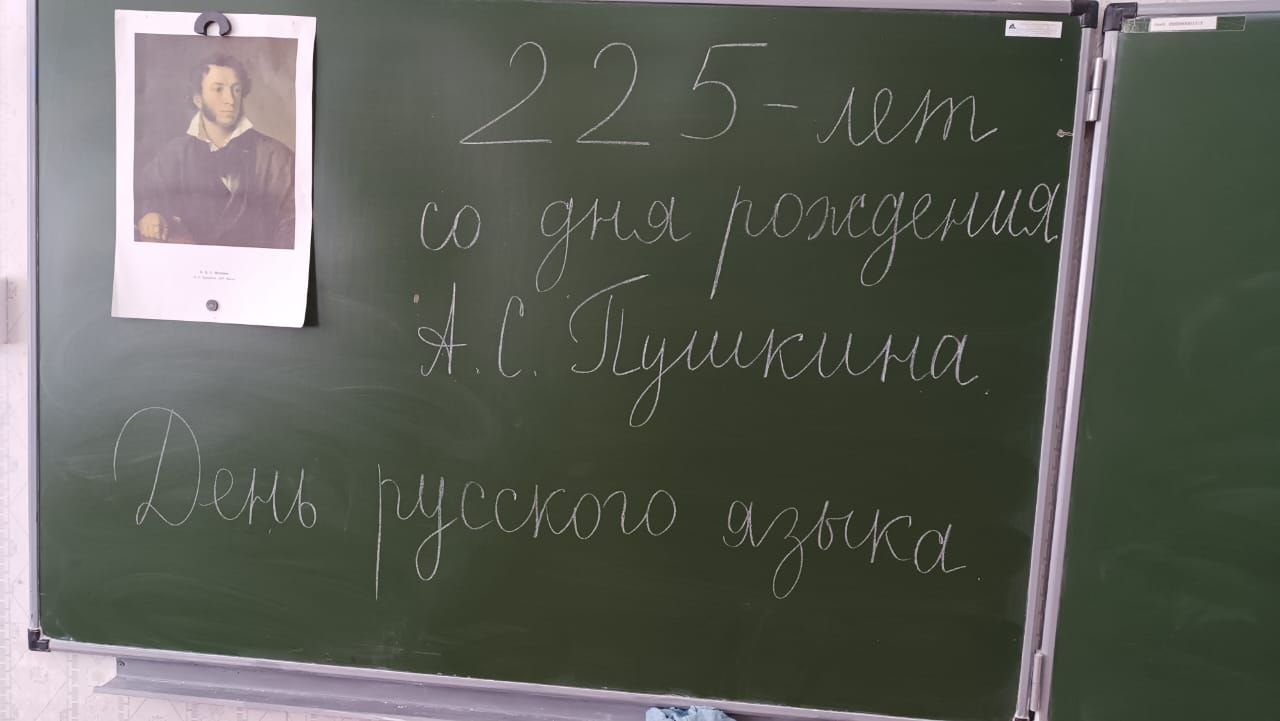 225 - лет
со дня рождения
А. С. Пушкина.
День русского языка.